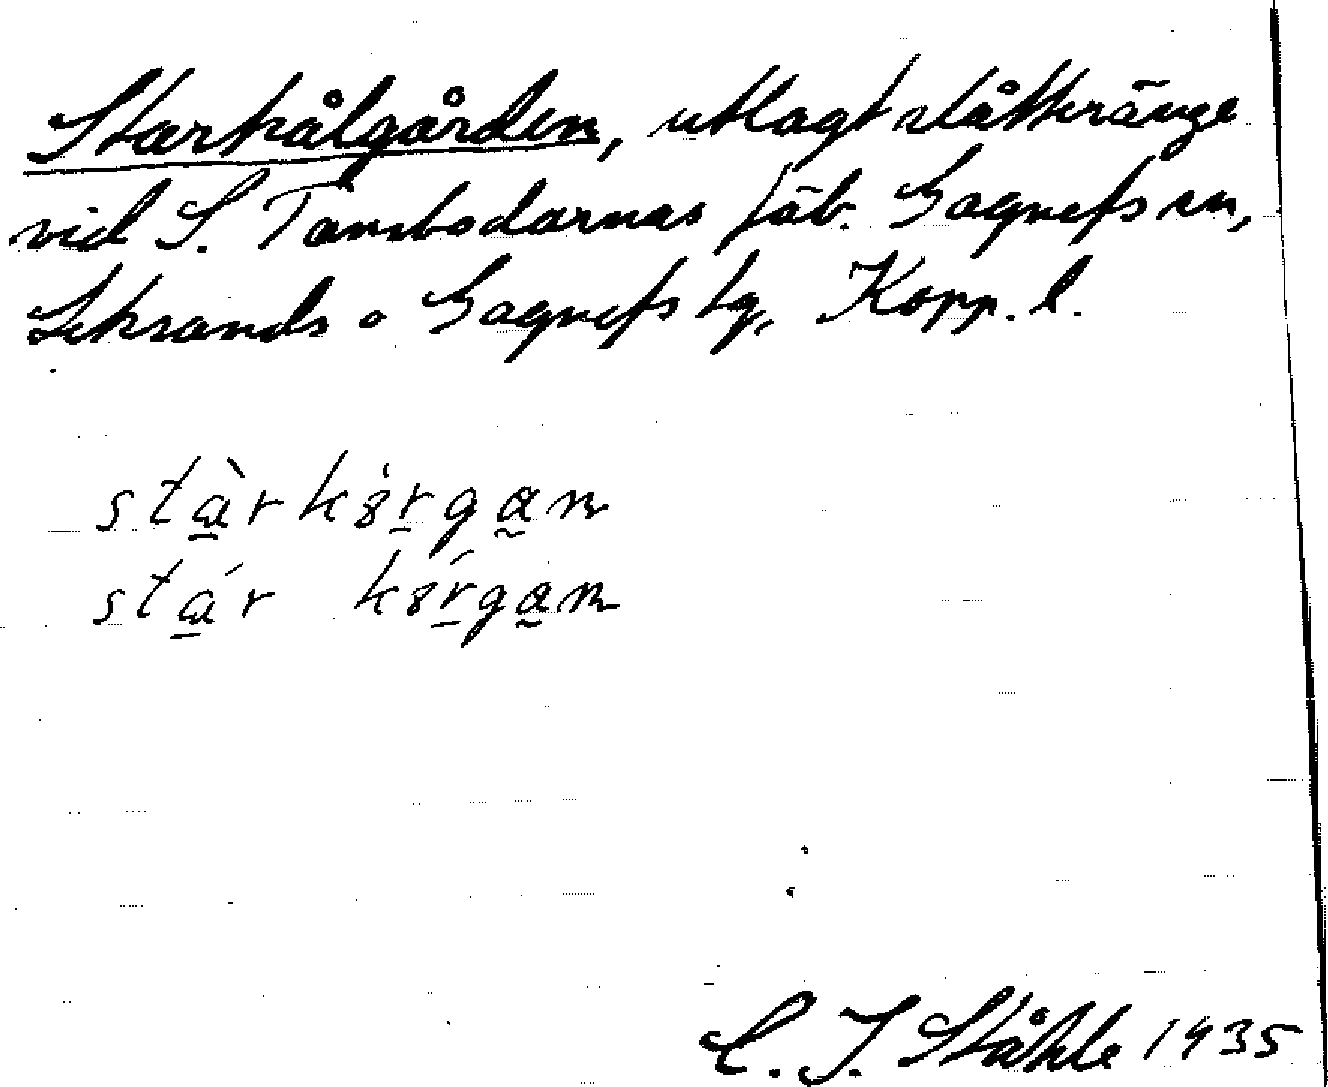 Starkålgården, utlagt slåtteränge
vid S. Tansbodarnas fäb. Gagnefs sn,
Leksands o Gagnefs tg, Kopp. l.
stàrkȣ̀rgan
stár kȣŕgan
C. I. Ståhle 1935